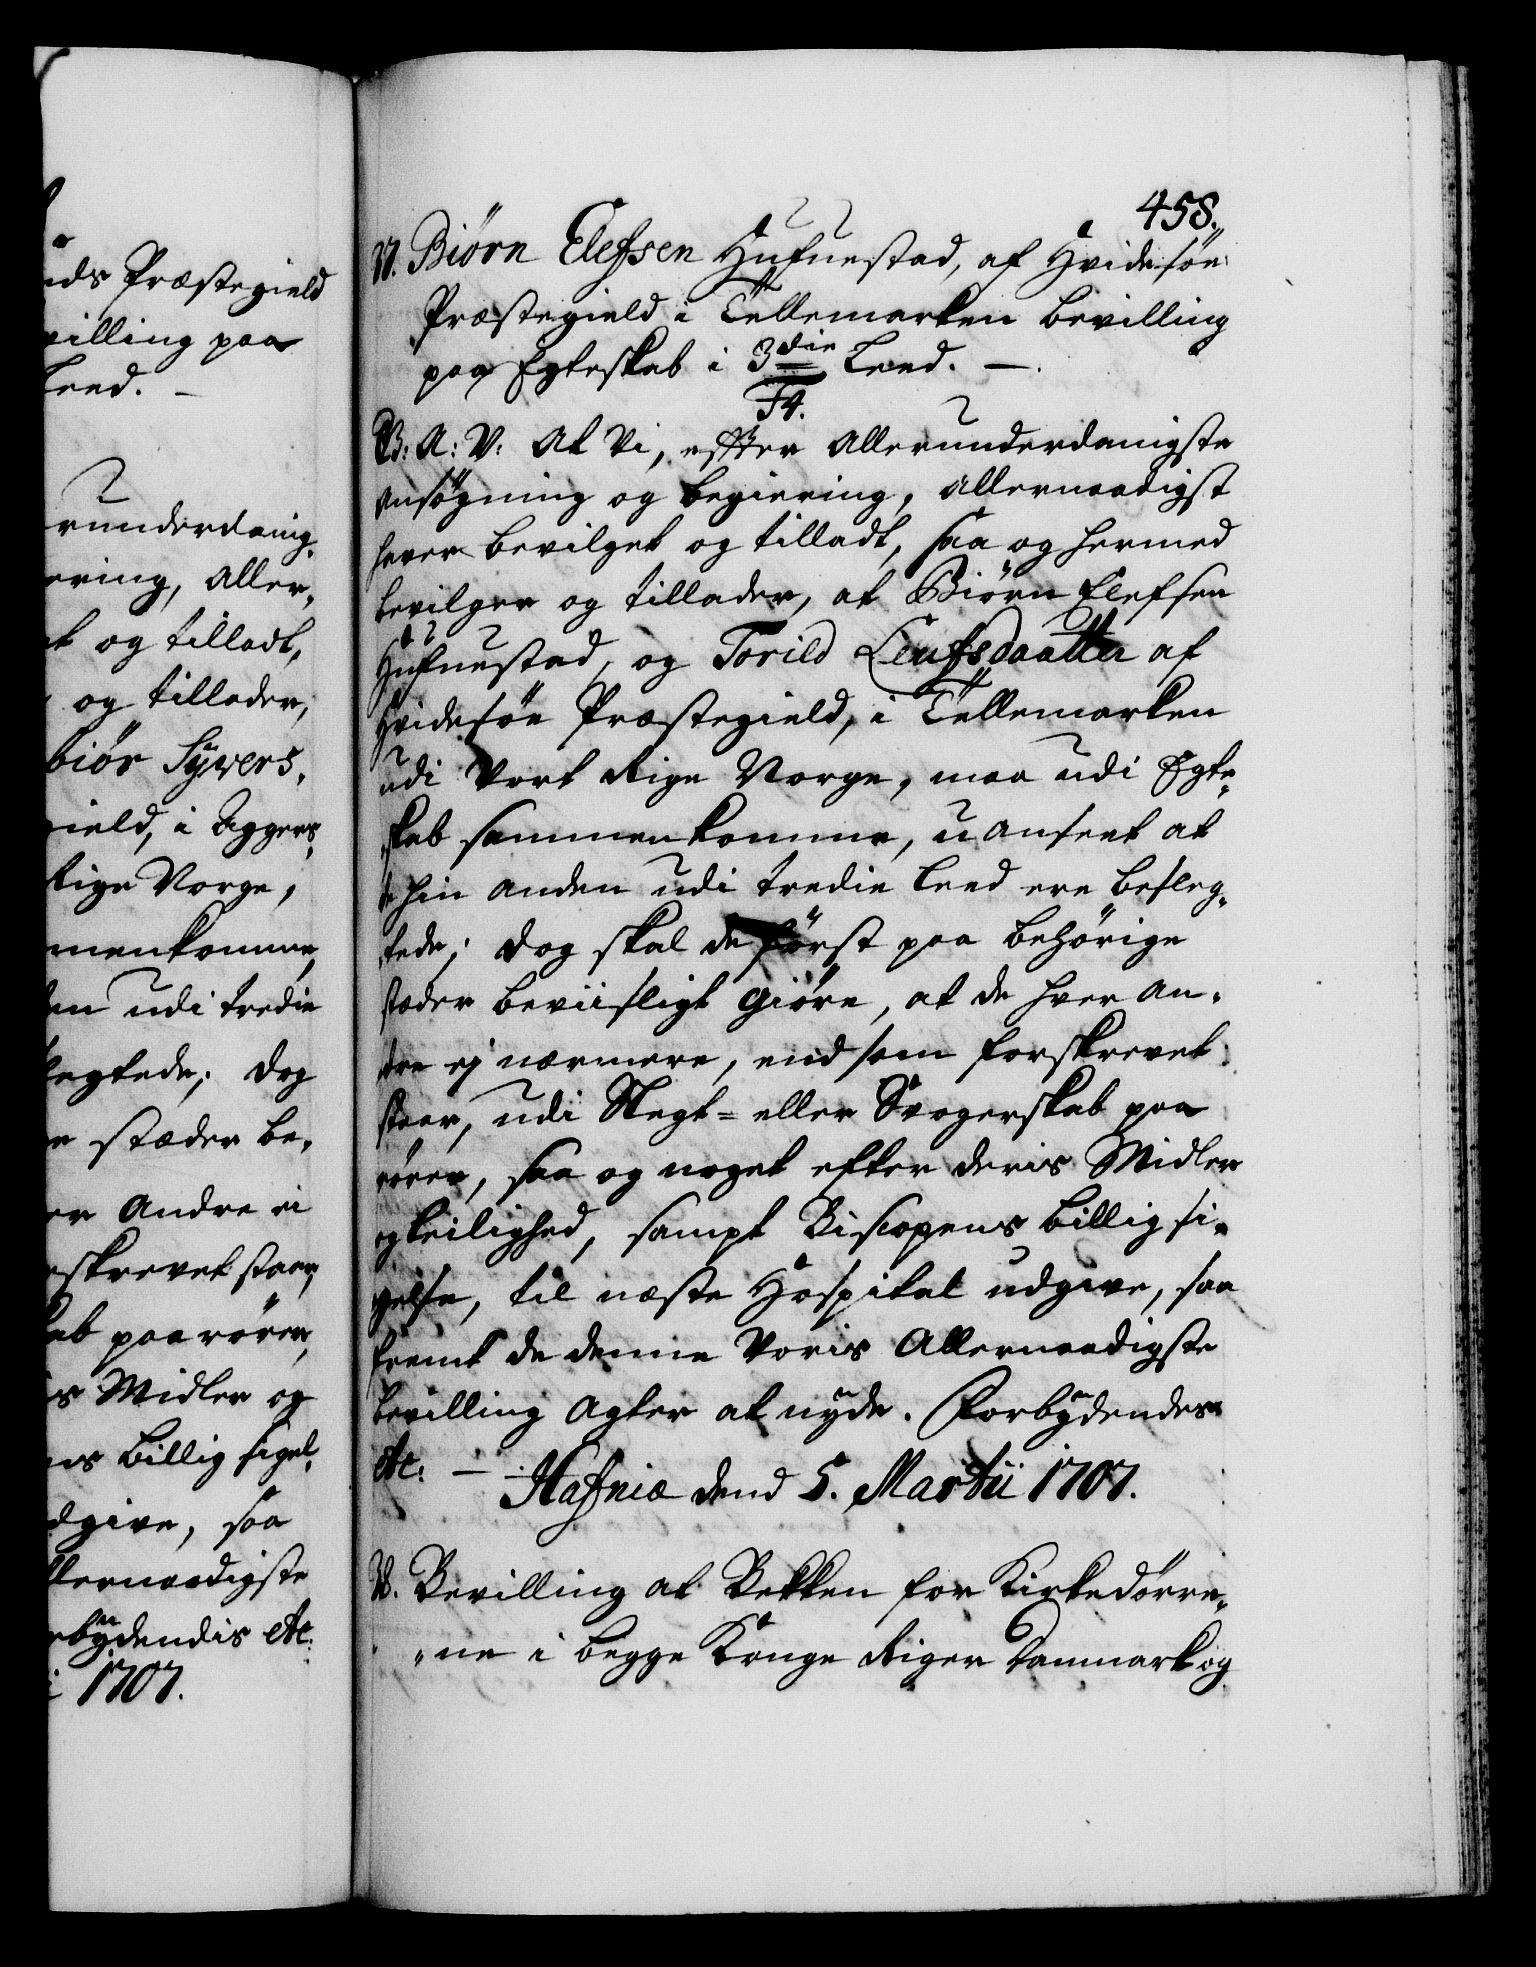 ds Præstegield
villing paa
Leed. –
runderdanig„
ering, aller„
et og tilladt,
og tillader,
biør Syvers„
gield, i Agger„
Rige Norge,
menkomme,
en udi tredie
legtede; dog
e stæder be„
er andre ei
skrevet staar,
ab paarører,
is Midler og
ns billig sigel„
dgive, saa
llernaadigste
rbydendis etc:
i 1707.
458.
37. Biørn Elefsen Hufuestad, af Hvidesøe
Præstegield i Tellemarken bevilling
paa Egteskab i 3die Leed. –
F4.
W: A: V: At Vi, efter allerunderdanigste
ansøgning og begiering, allernaadigst
hafver bevilget og tilladt, saa og hermed
bevilger og tillader, at Biørn Elefsen
Hufuestad, og Torild Leufsdaatter af
Hvidesøe Præstegield, i Tellemarken
udi Vort Rige Norge, maa udi Egte„
skab sammenkomme, uanseet at
de hin anden udi tredie Leed ere besleg„
tede; dog skal de først paa behørige
stæder beviisligt giøre, at de hver an„
dre ej nærmere, end som forskrevet
staar, udi Slegt= eller Svogerskab paa
rører, saa og noget efter deris Midler
og leilighed, sampt Biscopens billig si„
gelse, til næste Hospital udgive, saa
fremt de denne Voris Allernaadigste
bevilling agter at nyde. Forbydendes
etc: – Hafniæ dend 5. Martii 1707.
38. Bevilling at Bekken for Kirkedørre„
„ne i begge Konge Riger Danmark og